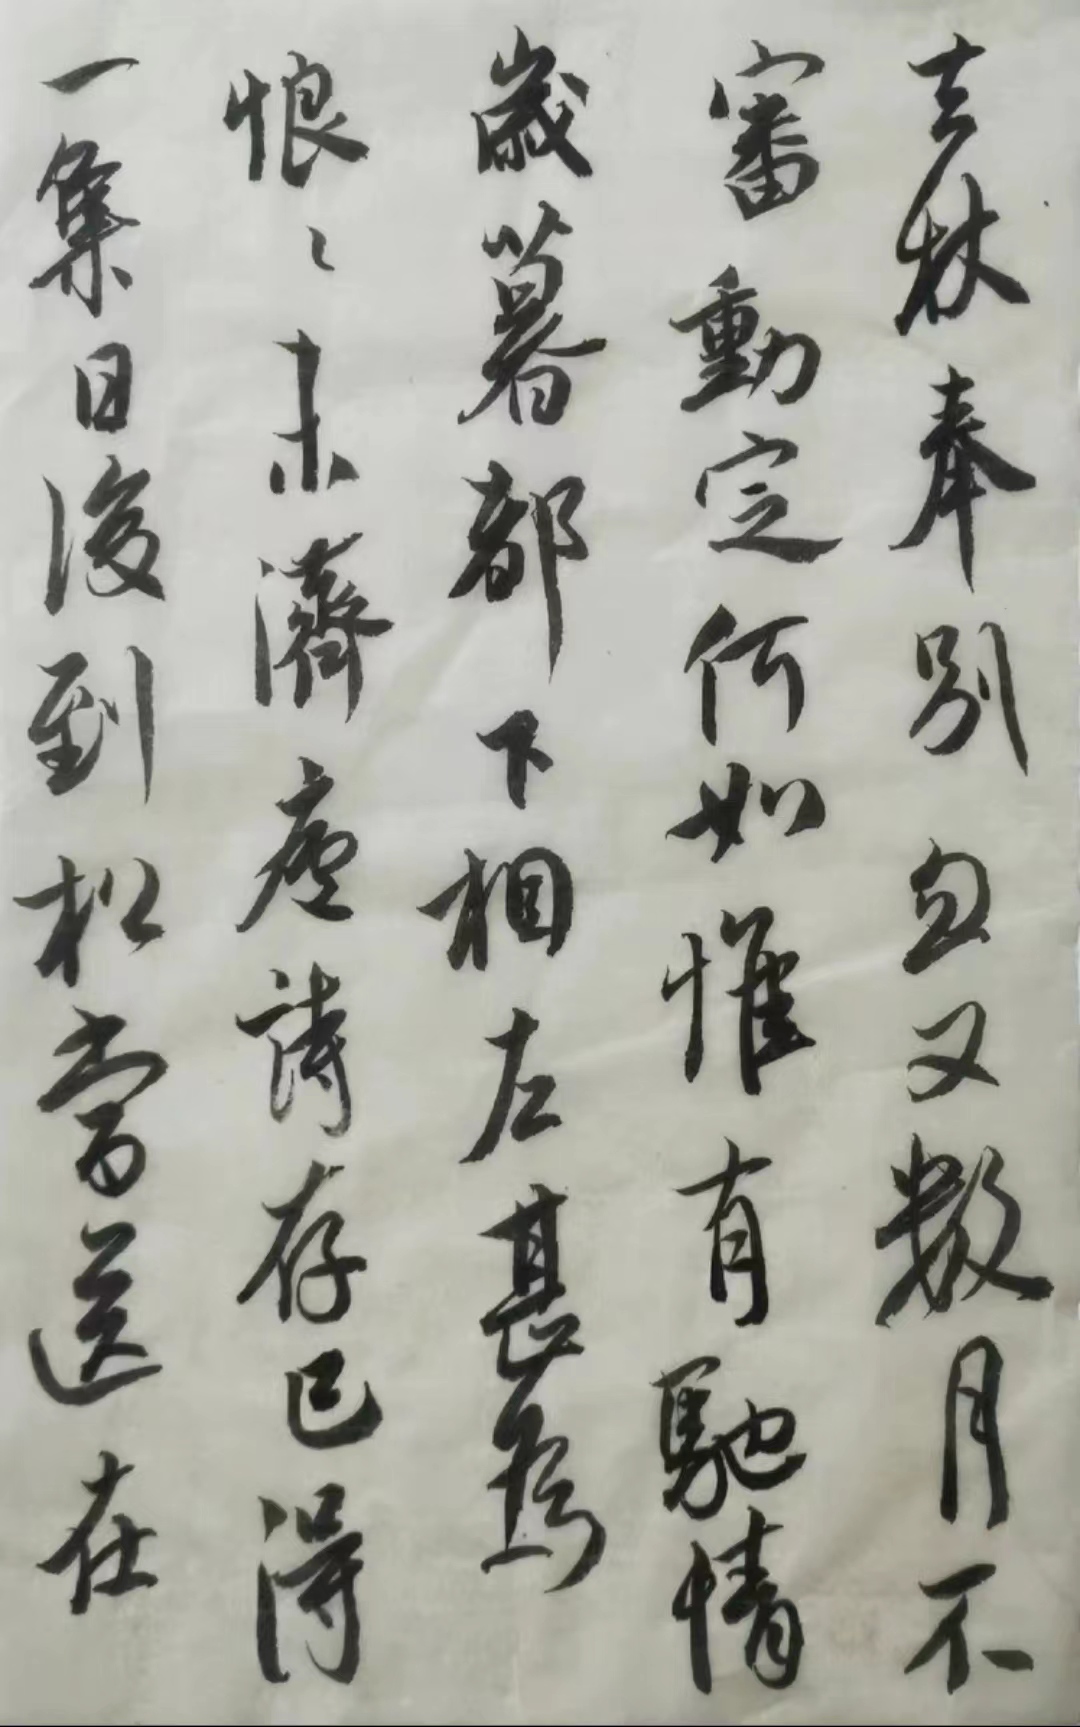 去秋奉別忽又数月不
審動定何如惟有馳情
歲暮都下相左甚為
恨〻未濟廬詩存已得
一集日後到松當送在